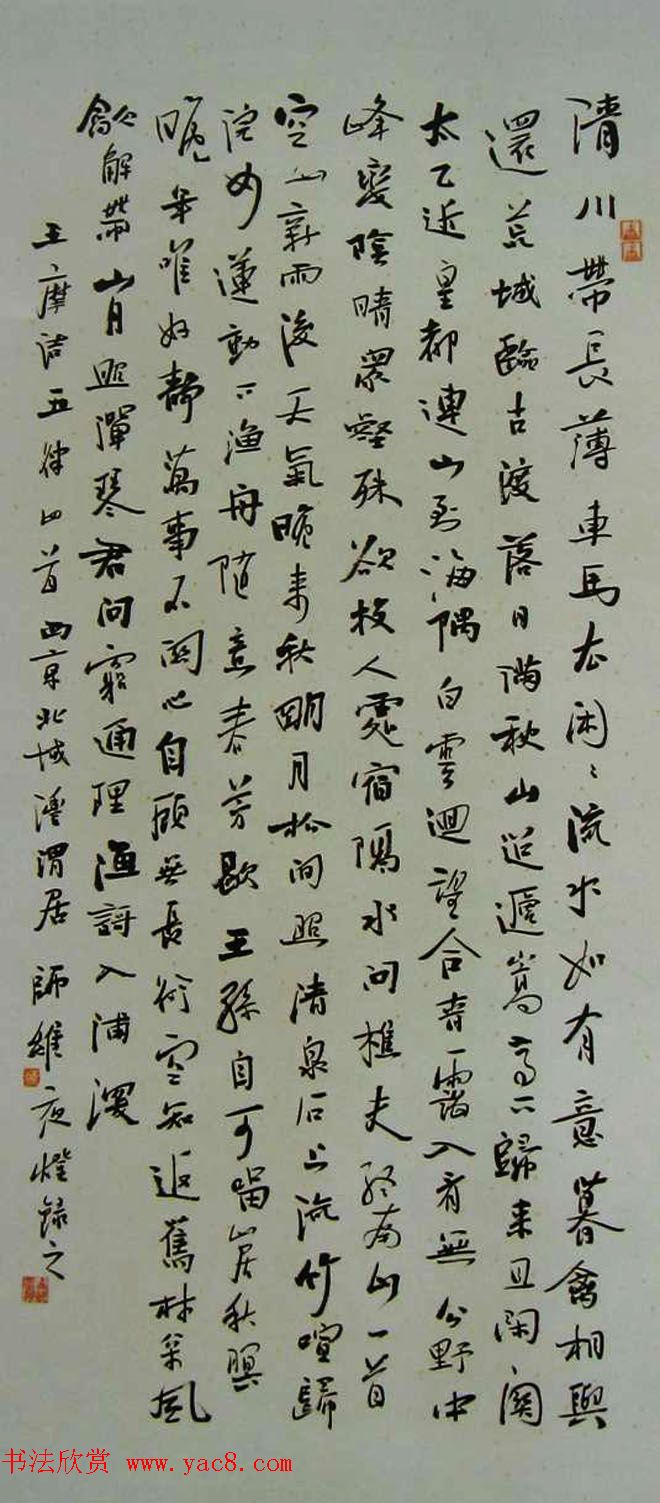 清川帶長薄車馬去閑〻流水如有意暮禽相與
還荒城臨古渡落日滿秋山迢遞嵩高下歸來且閉關
太乙近皇都連山到海隅白雲迴望合青靄入看無分野中
峰變陰晴眾壑殊欲投人處宿隔水問樵夫終南山一首
空山新雨後天氣晚來秋明月松間照清泉石上流竹喧歸
浣女蓮動下漁舟隨意春芳歇王孫自可留山居秋暝
晚年唯好靜萬事不關心自顧無長術空知返舊林松風
龡解帶山月照彈琴君問窮通理漁謌入浦深
王摩詰五律四首西京北城灃渭居師維夜燈錄之
书法欣赏 www.yac8.com